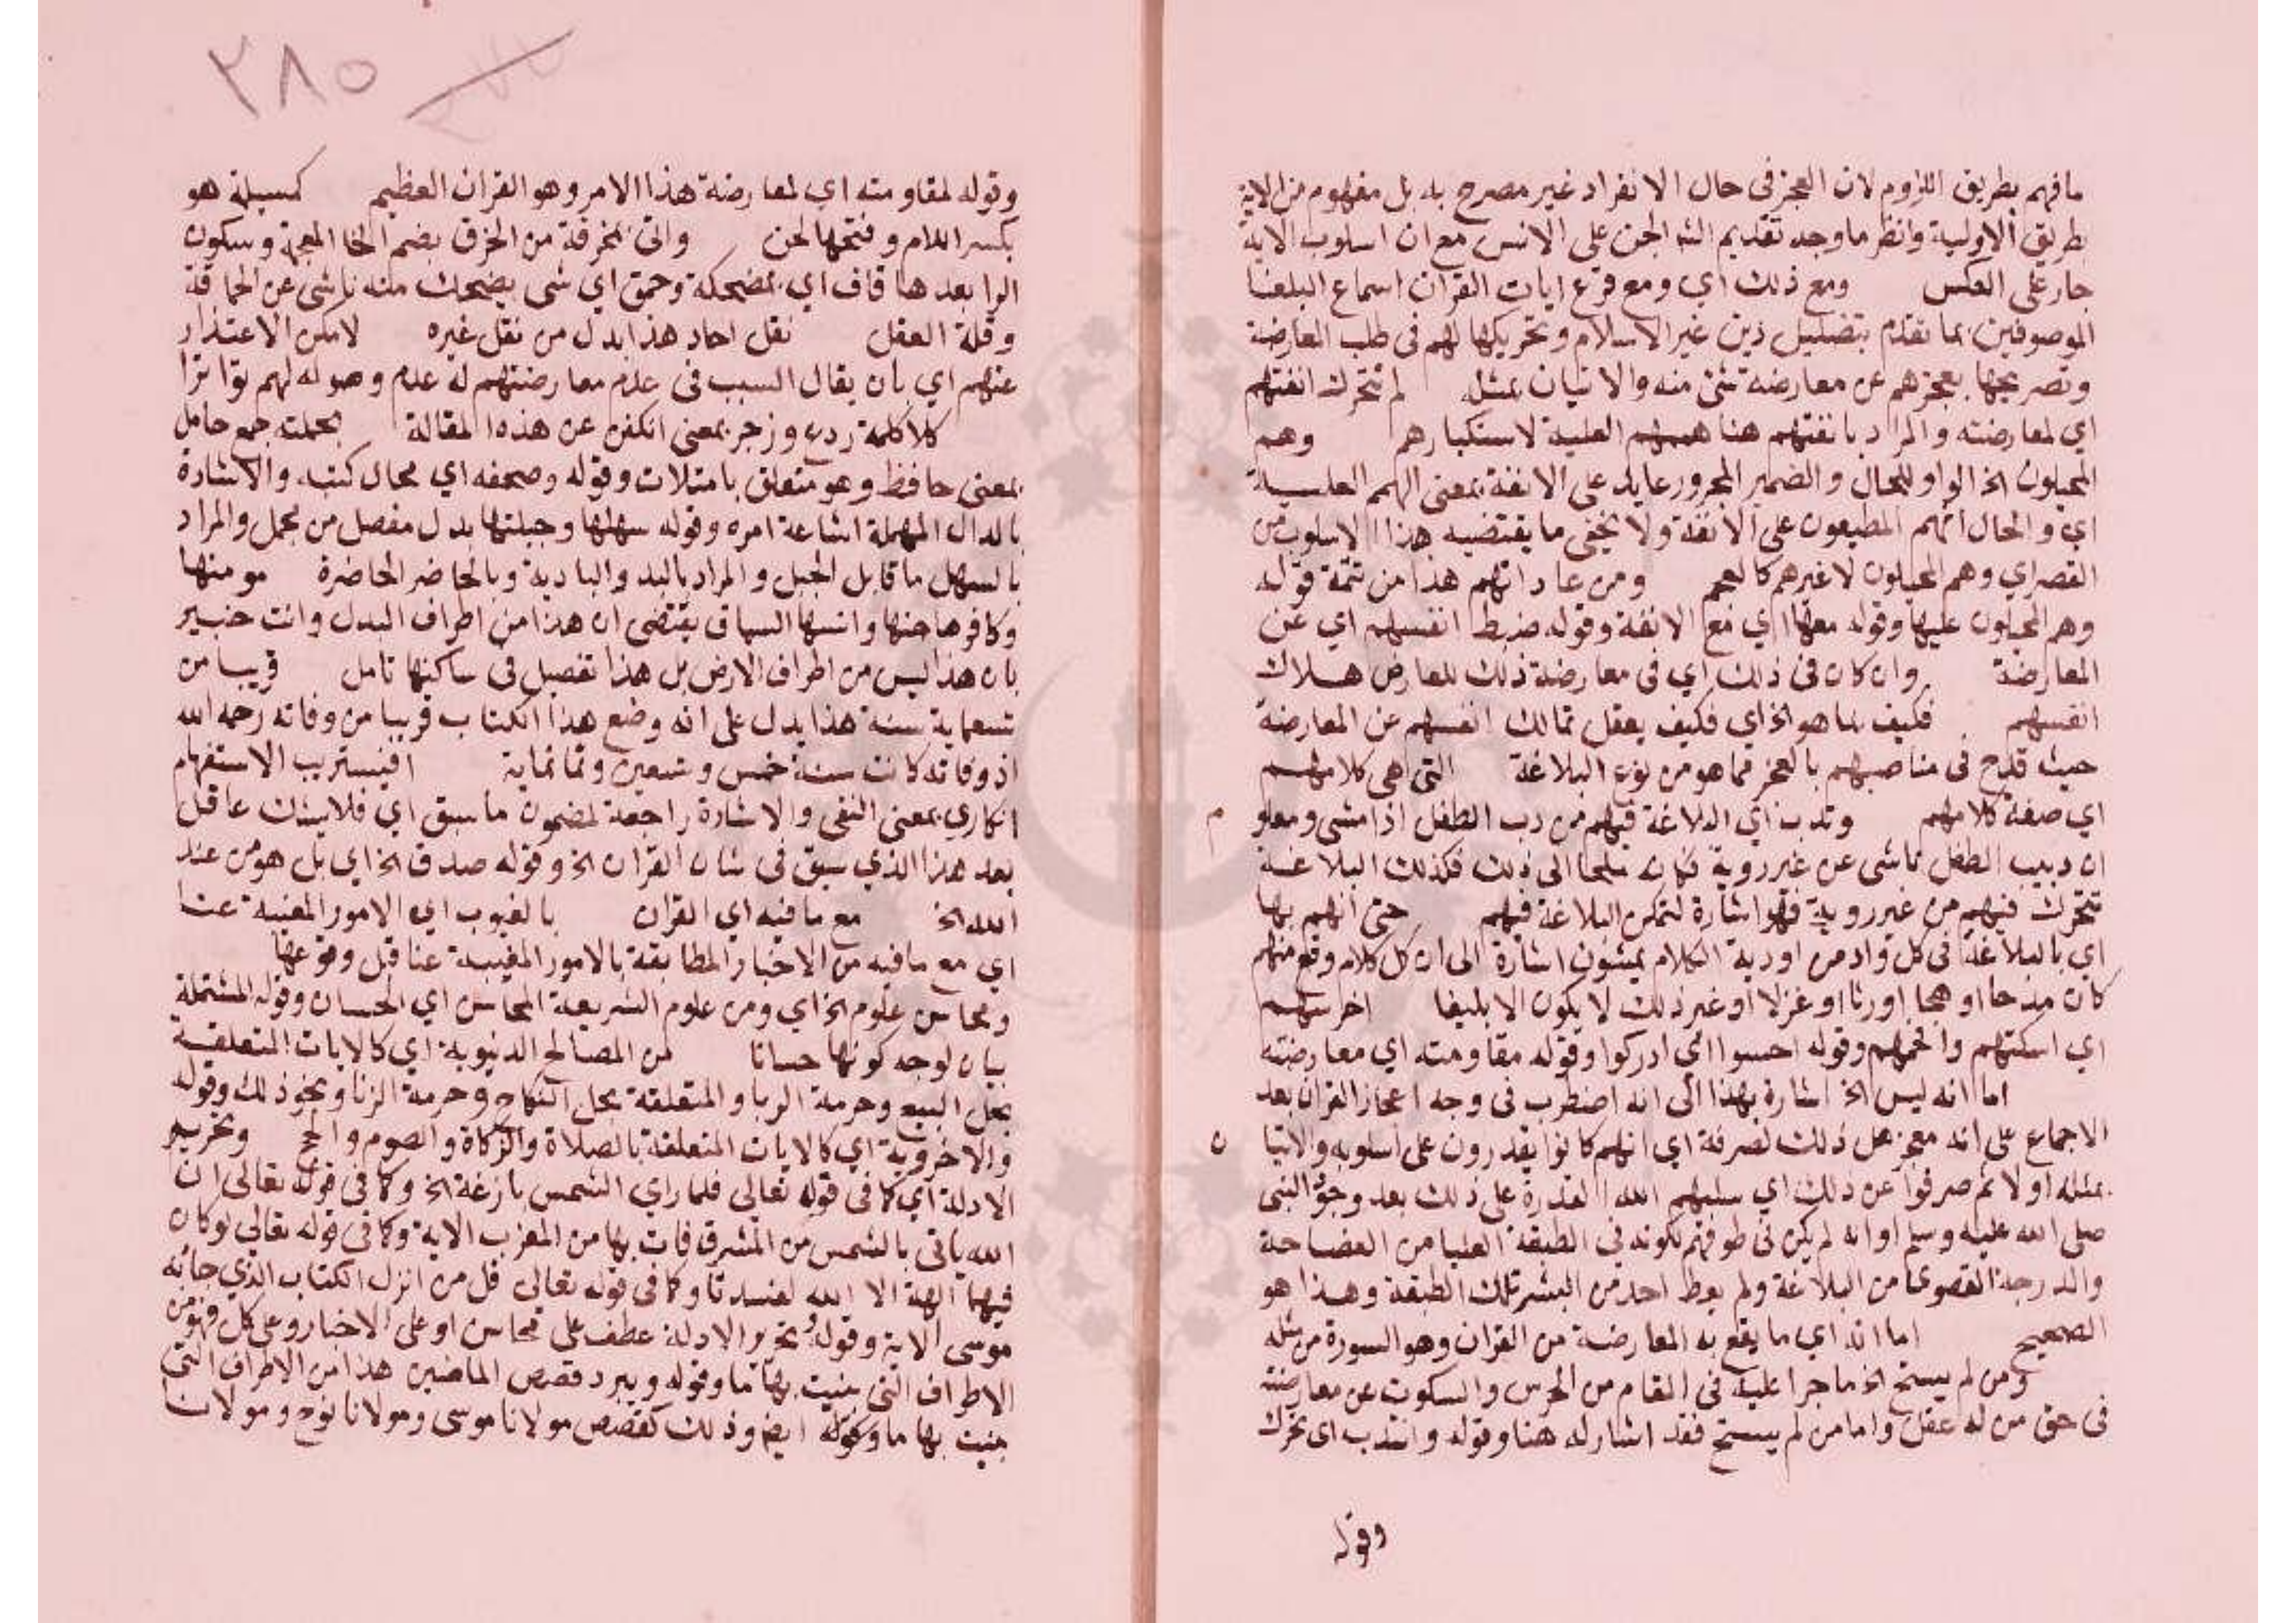 ما فهم بطريق اللزوم لان العجز في حال الانفراد غير مصرح به بل مفهوم من الاية
بطريق الاولية وانظر ما وجه تقديم الله الجن على الانس مع ان اسلوب الاية
جار على العكس ومع ذلك اي ومع قرع ايات القران اسماع البلغا
الموصوفين بما تقدم بتضليل دين غير الاسلام وتحريكها لهم في طلب المعارضة
وتصريحها بعجزهم عن معارضة شئ منه والاتيان بمثله لم تتحرك انفتهم
اي لمعارضته والمراد بانفتهم هنا هممهم العلية لاستكبارهم وهم
المجبلون الخ الواو للحال والضمير المجرور عايد على الانفة بمعنى الهمم العلية
اي والحال انهم المطبوعون على الانفة ولا يخفى ما يقتضيه هذا الاسلوب من
القصر اي وهم المجبلون لا غيرهم كالعجم ومن عاداتهم هذا من تتمة قوله
وهم المجبلون عليها وقوله معها اي مع الانفة وقوله ضبط انفسهم اي عن
المعارضة وان كان في ذلك اي في معارضة ذلك المعارض هلاك
انفسهم فكيف بما هو الخ اي فكيف يعقل تمالك انفسهم عن المعارضة
حيث قدح في مناصبهم بالعجز مما هو من نوع البلاغة التي هي كلامهم
اي صفة كلامهم وتدب اي البلاغة فيهم من دب الطفل اذا مشى ومعلوم
ان دبيب الطفل ناشى عن غير روية فكانه ملجا الى ذلك فكذلك البلاغة
تتحرك فيهم من غير روية فهو اشارة لتمكن البلاغة فيهم حتى انهم بها
اي بالبلاغة في كل واد من اودية الكلام يمشون اشارة الى ان كل كلام وقع منهم
كان مدحا او هجا او رثا او غزلا او غير ذلك لا يكون الا بليغا اخرسهم
اي اسكتهم وافحمهم وقوله احسوا اي ادركوا وقوله مقاومته اي معارضته
اما انه ليس الخ اشارة بهذا الى انه اضطرب في وجه اعجاز القران بعد
الاجماع على انه معجز هل ذلك لصرفة اي انهم كانوا يقدرون على اسلوبه والاتيان
بمثله اولا ثم صرفوا عن ذلك اي سلبهم الله القدرة على ذلك بعد وجود النبي
صلى الله عليه وسلم او انه لم يكن في طوقهم لكونه في الطبقة العليا من الفصاحة
والدرجة القصوى من البلاغة ولم يعط احد من البشر تلك الطبقة وهذا هو
الصحيح اما انه اي ما يقع به المعارضة من القران وهو السورة من مثله
ومن لم يستح الخ ما جرا عليه في المقام من الخرس والسكوت عن معارضته
في حق من له عقل واما من لم يستح فقد اشار له هنا وقوله وانتدب اي تحرك
وقوله
٢٨٥
وقوله لمقاومته اي لمعارضة هذا الامر وهو القران العظيم كمسيلمة هو
بكسر اللام وفتحها لحن واتى بمخرقة من الخرق بضم الخا المعجمة وسكون
الرا بعدها قاف اي بمضحكة وحمق اي شى يضحك منه ناشى عن الحماقة
وقلة العقل نقل احاد هذا بدل من نقل غيره لامكن الاعتذار
عنهم اي بان يقال السبب في عدم معارضتهم له عدم وصوله لهم تواترا
كلا كلمة ردع وزجر بمعنى انكفن عن هذه المقالة بحملته جمع حامل
بمعنى حافظ وهو متعلق بامتلات وقوله وصحفه اي محال كتبه والاشادة
بالدال المهملة اشاعة امره وقوله سهلها وجبلها بدل مفصل من مجمل والمراد
بالسهل ما قابل الجبل والمراد بالبد والبادية وبالحاضر الحاضرة مومنها
وكافرها جنها وانسها السياق يقتضى ان هذا من اطراف البدل وانت خبير
بان هذا ليس من اطراف الارض بل هذا تفصيل في ساكنها تامل قريبا من
تسعماية سنة هذا يدل على انه وضع هذا الكتاب قريبا من وفاته رحمه الله
اذ وفاته كانت سنة خمس وتسعين وثمانماية افيستريب الاستفهام
انكاري بمعنى النفى والاشارة راجعة لمضمون ما سبق اي فلا يشك عاقل
بعد هذا الذي سبق في شان القران الخ وقوله صدق الخ اي بل هو من عند
الله الخ مع ما فيه اي القران بالغيوب اي الامور المغيبة عنا
اي مع ما فيه من الاخبار المطابقة بالامور المغيبة عنا قبل وقوعها
ومحاسن علوم الخ اي ومن علوم الشريعة المحاسن اي الحسان وقوله المشتملة
بيان لوجه كونها حسانا من المصالح الدنيوية اي كالايات المتعلقة
بحل البيع وحرمة الربا والمتعلقة بحل النكاح وحرمة الزنا ونحو ذلك وقوله
والاخروية اي كالايات المتعلقة بالصلاة والزكاة والصوم والحج وتحرير
الادلة اي كما في قوله تعالى فلما راي الشمس بازغة الخ وكما في قوله تعالى ان
الله ياتى بالشمس من المشرق فات بها من المغرب الاية وكما في قوله تعالى لو كان
فيهما الهة الا الله لفسدتا وكما في قوله تعالى قل من انزل الكتاب الذي جا به
موسى الاية وقوله وتحرير الادلة عطف على محاسن او على الاخبار وعلى كل فهو من
الاطراف التي بينت بها ما وقوله ويبرد قصص الماضين هذا من الاطراف التي
بينت بها ما وكقوله ايضم وذلك كقصص مولانا موسى ومولانا نوح ومولانا